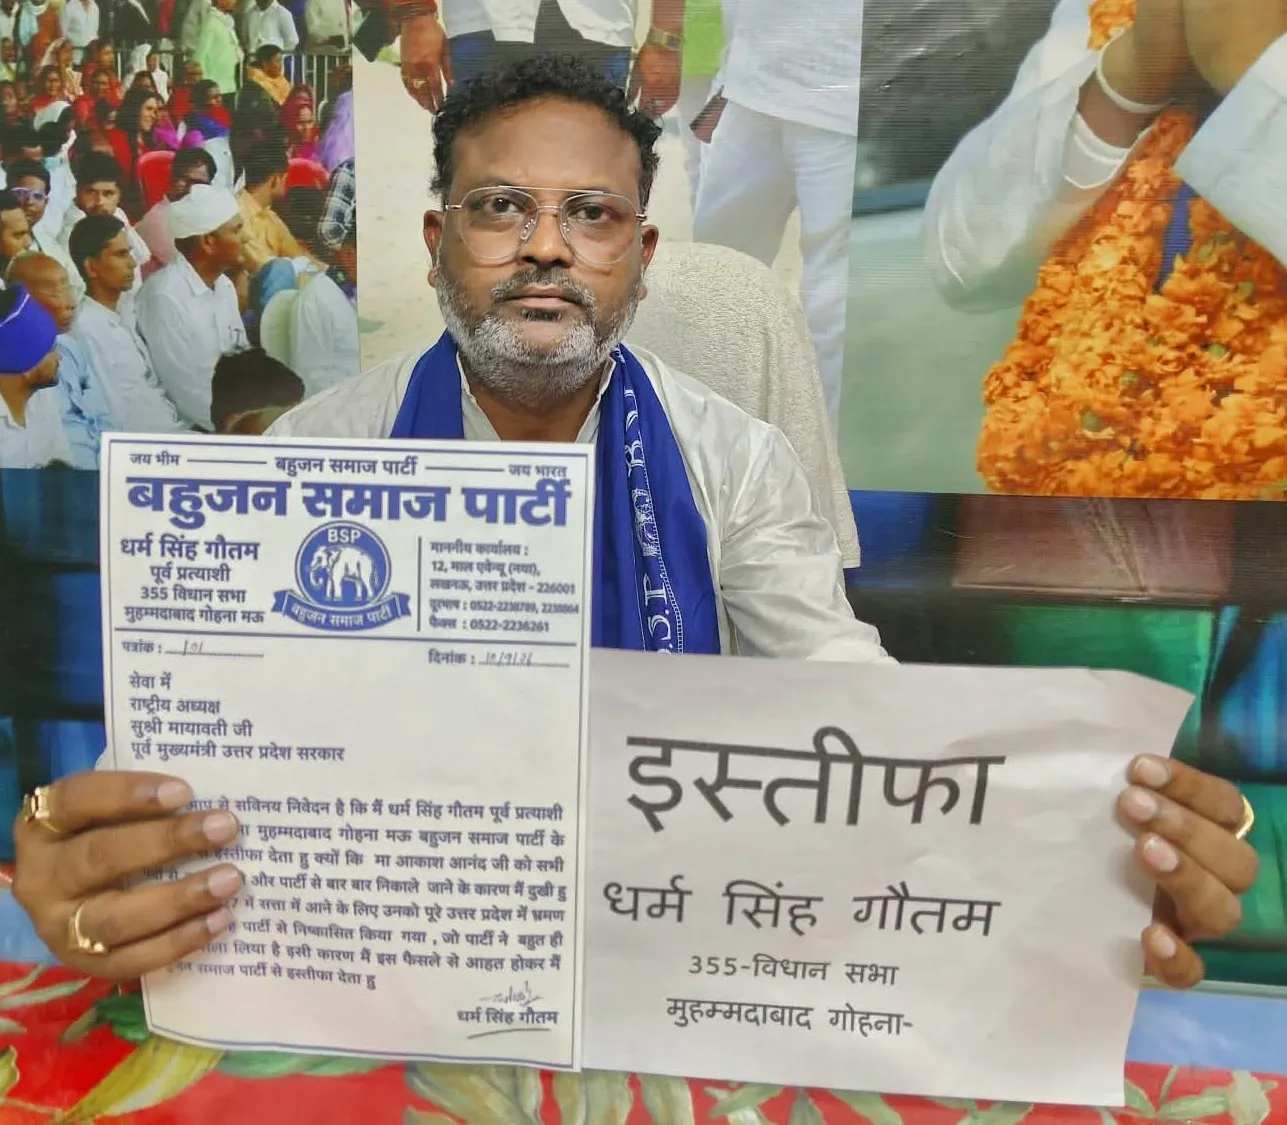 जय भीम बहुजन समाज पार्टी जय भारत
बहुजन समाज पार्टी
धर्म सिंह गौतम
पूर्व प्रत्याशी
355 विधान सभा
मुहम्मदाबाद गोहना मऊ
BSP
बहुजन समाज पार्टी
माननीय कार्यालय :
12, माल एवेन्यू (नया),
लखनऊ, उत्तर प्रदेश - 226001
दूरभाष : 0522-2238789,
फैक्स : 0522-2236261
पत्रांक : 101
दिनांक :
सेवा में
राष्ट्रीय अध्यक्ष
सुश्री मायावती जी
पूर्व मुख्यमंत्री उत्तर प्रदेश सरकार
आप से सविनय निवेदन है कि मैं धर्म सिंह गौतम पूर्व प्रत्याशी
मुहम्मदाबाद गोहना मऊ बहुजन समाज पार्टी के
इस्तीफा देता हु क्यों कि मा आकाश आनंद जी को सभी
और पार्टी से बार बार निकाले जाने के कारण मैं दुखी हु
में सत्ता में आने के लिए उनको पूरे उत्तर प्रदेश में भ्रमण
पार्टी से निष्कासित किया गया , जो पार्टी ने बहुत ही
लिया है इसी कारण मैं इस फैसले से आहत होकर मैं
समाज पार्टी से इस्तीफा देता हु
धर्म सिंह गौतम
इस्तीफा
धर्म सिंह गौतम
355-विधान सभा
मुहम्मदाबाद गोहना-